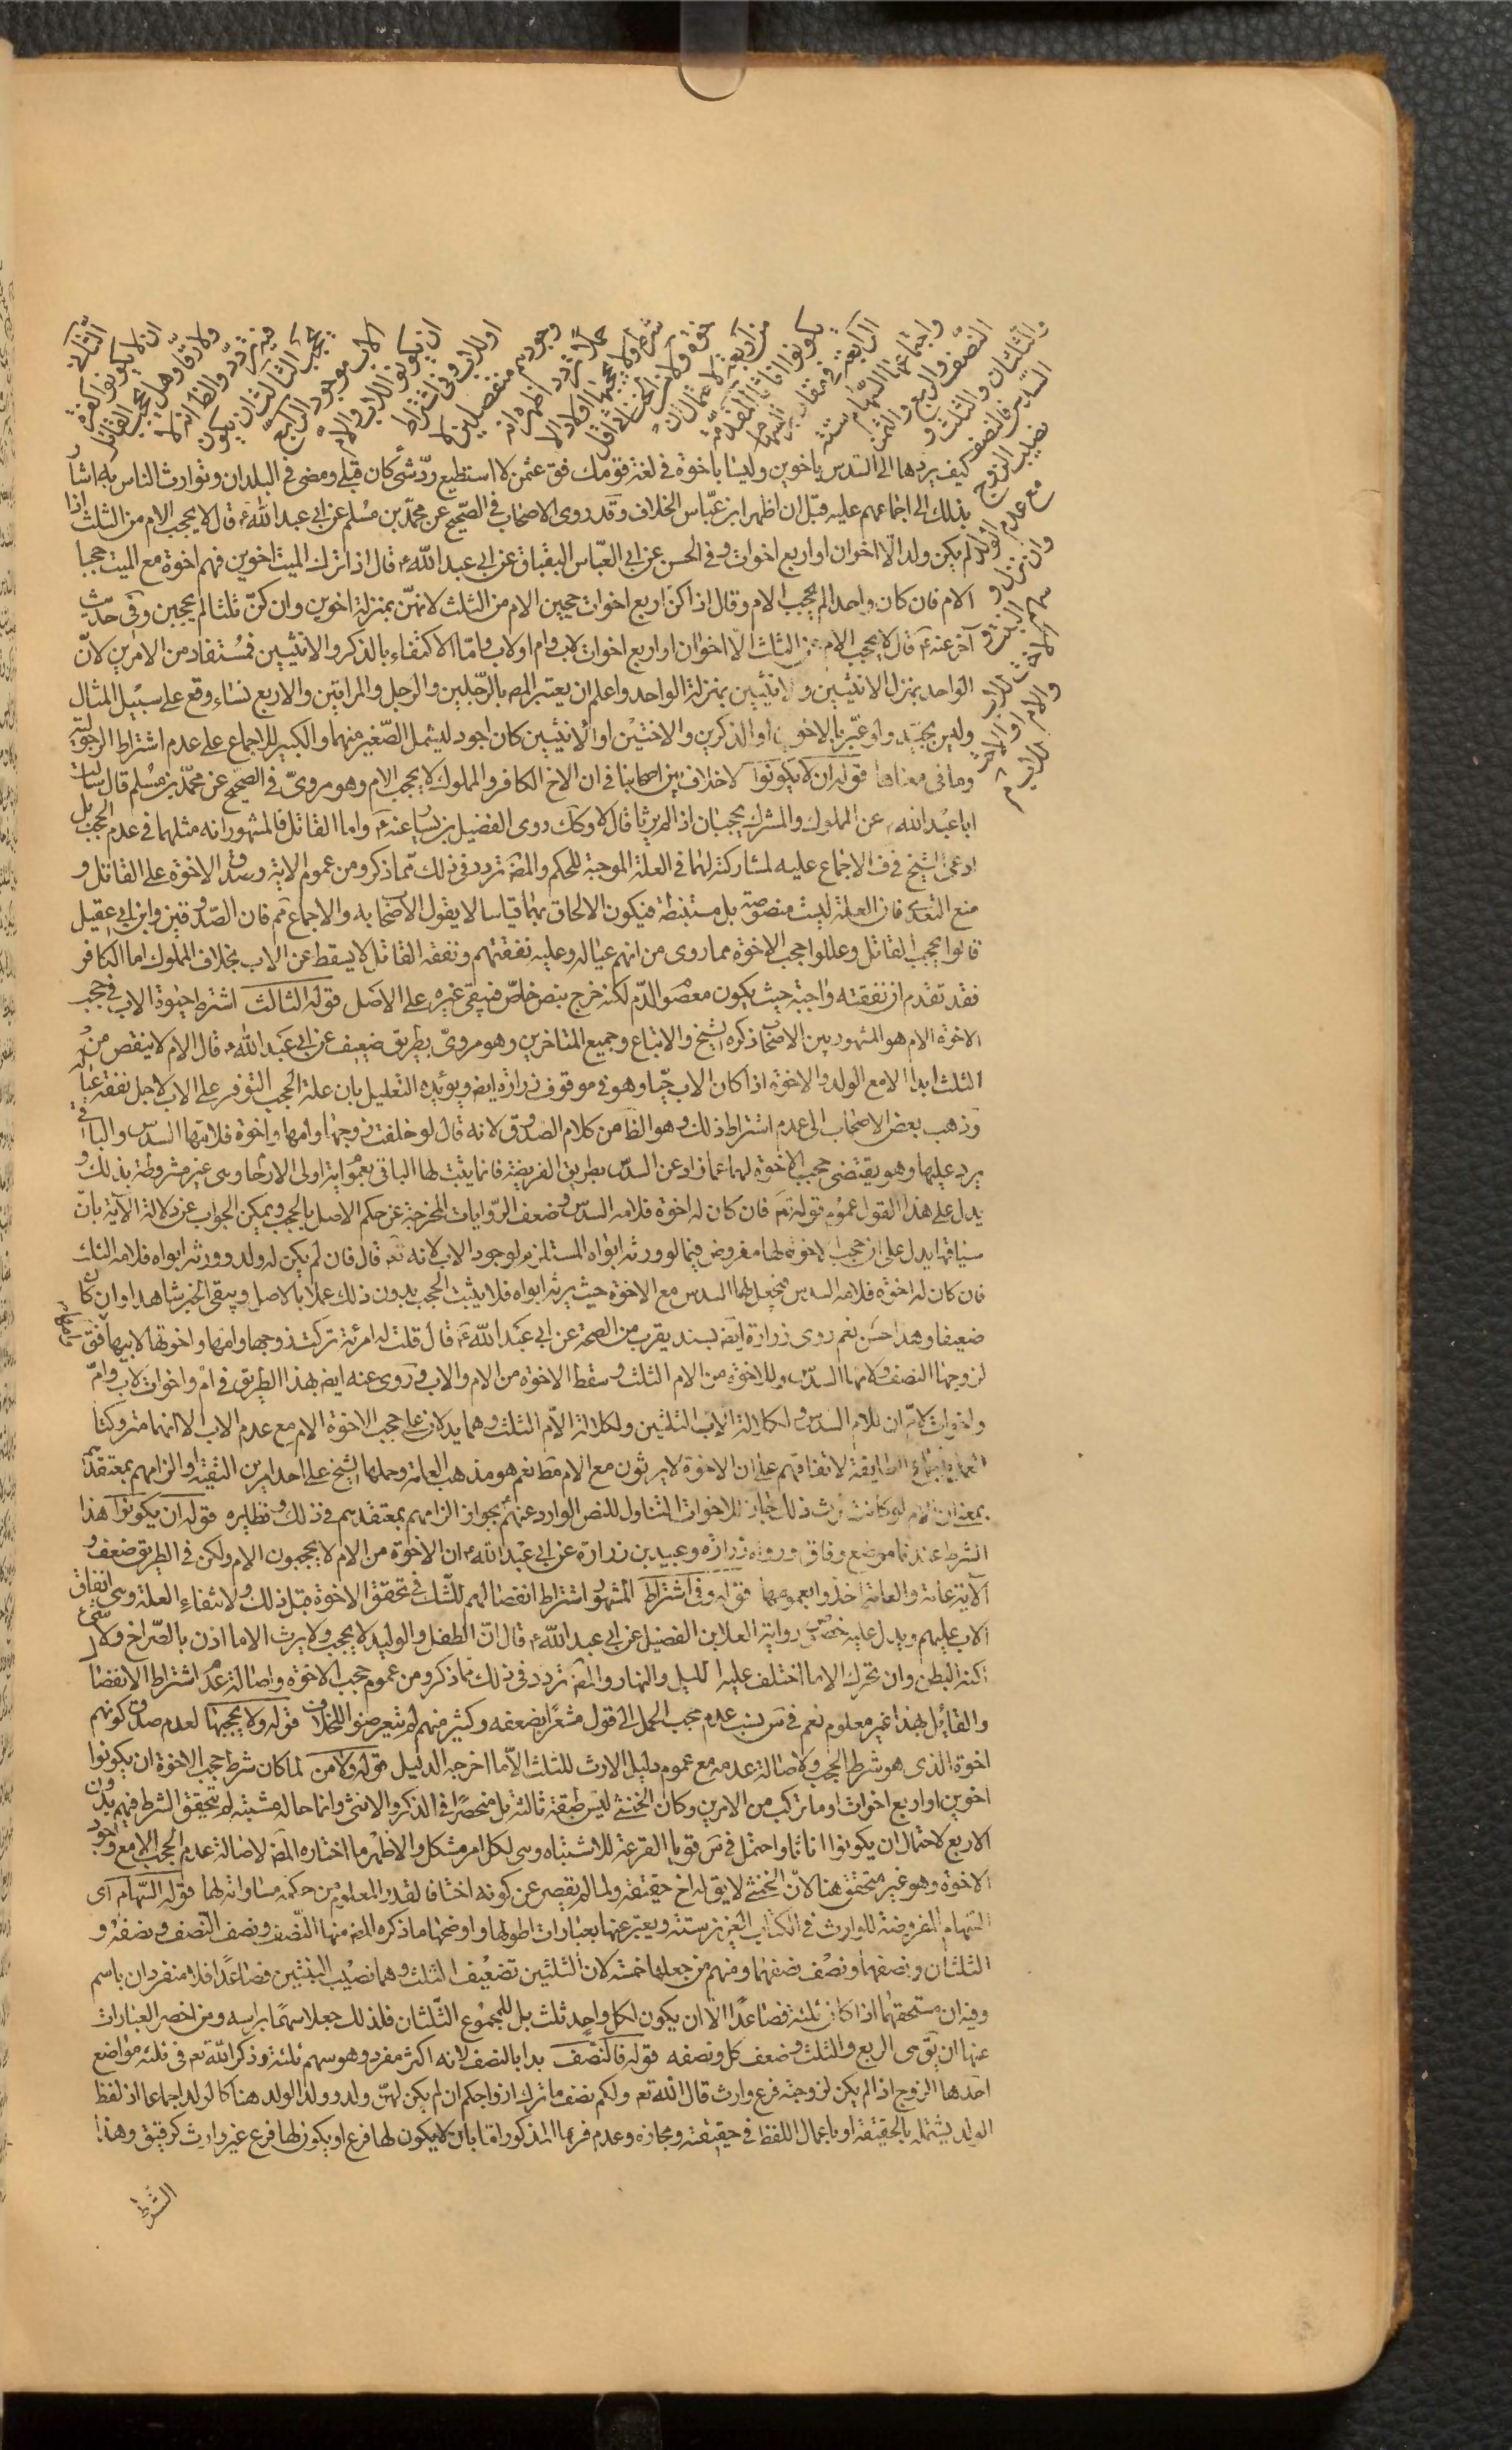 الثاني ان لا يكونوا كفرة
ولا ارقّاء وهل يحجب القاتل
فيه تردّد والظّ انه لا
يحجب الثالث ان يكون
الاب موجود الرابع
ان يكونوا للاب والام
او للاب وفي اشتراط
وجودهم منفصلين لا
حملا تردد اظهره انه
شرط ولا يحجبها اولاد الا
خوة ولا من الخناثى اقل
من اربعة لاحتمال ان
يكونوا اناثا المقدّمة
الرابعة في مقادير السهام
واجتماعها السّهام ستة
النّصف والربع والثمن
والثلثان والثلث و
السّدس فالنصف
نصيب الزوج
مع عدم الولد
وان نزل و
سهم البنت و
الاخت للاب
والام او الاخت
للاب
كيف يردها الى السّدس باخوين وليسا باخوة في لغة قومك فق عثمن لا استطيع ردّ شئ كان قبلى ومضى في البلدان وتوارث الناس به اشا
بذلك الى اجماعهم عليه قبل ان اظهر ابن عبّاس الخلاف وقد روى الاصحاب في الصّحيح عن محمّد بن مسلم عن ابي عبد اللّه ع قال لا يحجب الام من الثلث اذا
لم يكن ولد الّا اخوان او اربع اخوات وفي الحسن عن ابي العبّاس البقباق عن ابي عبد اللّه ع قال اذا ترك الميت اخوين فهم اخوة مع الميت حجبا
الام فان كان واحدا لم يحجب الام وقال اذا كنّ اربع اخوات حجبن الام من الثلث لانهنّ بمنزلة اخوين وان كنّ ثلثا لم يحجبن وفي حديث
آخر عنه ع قال لا يحجب الام عن الثلث الّا اخوان او اربع اخوات لاب وام او لاب وامّا الاكتفاء بالذكر والانثيين فمستفاد من الامرين لانّ
الواحد بمنزلة الانثيين والانثيين بمنزلة الواحد واعلم ان تعبير المص بالرّجلين والرجل والمراتين والاربع نساء وقع على سبيل المثال
وليس بجيّد ولو عبّر بالاخوين او الذكرين والاختين او الانثيين كان اجود ليشمل الصّغير منهما والكبير للاجماع على عدم اشتراط الرجوليّة
وما في معناها قوله ان لا يكونوا لا خلاف بين اصحابنا في ان الاخ الكافر والمملوك لا يحجب الام وهو مرويّ في الصحيح عن محمّد بن مسلم قال سالت
ابا عبد اللّه ع عن المملوك والمشرك يحجبان اذا لم يرثا قال لا وكك روى الفضيل بن يسار عنه ع واما القاتل فالمشهور انه مثلهما في عدم الحجب بل
ادعى الشيخ في ف الاجماع عليه لمشاركته لهما في العلة الموجبة للحكم والمص تردد في ذلك مما ذكر ومن عموم الاية وصدق الاخوة على القاتل و
منع التعدي فان العلة ليست منصوصة بل مستنبطة فيكون الالحاق بهما قياسا لا يقول الاصحاب به والاجماع ثم فان الصّدوقين وابن ابي عقيل
قالوا يحجب القاتل وعللوا حجب الاخوة مما روى من انهم عياله وعليه نفقتهم ونفقة القاتل لا يسقط عن الاب بخلاف المملوك اما الكافر
فقد تقدم ان نفقته واجبة حيث يكون معصوم الدّم لكنه خرج بنص خاصّ فيبقى غيره على الاصل قوله الثالث اشتراط حيوة الاب في حجب
الاخوة الام هو المشهور بين الاصحاب ذكره الشيخ والاتباع وجميع المتاخرين وهو مرويّ بطريق ضعيف عن ابي عبد اللّه ع قال الام لا ينقص من
الثلث ابدا الا مع الولد والاخوة اذا كان الاب حيّا وهو في موقوف زرارة ايض ويؤيده التعليل بان علة الحجب التوفر على الاب لاجل نفقة عياله
وذهب بعض الاصحاب الى عدم اشتراط ذلك وهو الظ من كلام الصدوق لانه قال لو خلفت زوجها وامها واخوة فلامّها السدس والباقي
يرد عليها وهو يقتضى حجب الاخوة لها عما زاد عن السدس بطريق الفريضة فانما يثبت لها الباقي بعموم اية اولى الارحام وهي غير مشروطة بذلك و
يدل على هذا القول عموم قوله تع فان كان له اخوة فلامه السدس وضعف الرّوايات المخرجة عن حكم الاصل بالحجب ويمكن الجواب عن دلالة الآية بانّ
سياقها يدل على ان حجب الاخوة لها مفروض فيما لو ورثه ابواه المستلزم لوجود الاب لانه تع قال فان لم يكن له ولد وورثه ابواه فلامه الثلث
فان كان له اخوة فلامه السدس فجعل لها السدس مع الاخوة حيث يرثه ابواه فلا يثبت الحجب بدون ذلك عملا بالاصل ويبقى الخبر شاهدا وان كان
ضعيفا وهذا حسن نعم روى زرارة ايض بسند يقرب من الصحة عن ابي عبد اللّه ع قال قلت له امرئة تركت زوجها وامها واخوتها لابيها فق
لزوجها النصف ولامها السدس وللاخوة من الام الثلث وسقط الاخوة من الام والاب وروى عنه ايض بهذا الطريق في ام واخوات لاب وامّ
واخوات لامّ ان للام السدس ولكلالة الاب الثلثين ولكلالة الام الثلث وهما يدلان على حجب الاخوة الام مع عدم الاب الا انهما متروكتا
العمل باجماع الطايفة لاتفاقهم على ان الاخوة لا يرثون مع الام قط نعم هو مذهب العامة وحملها الشيخ على احد امرين التقية او الزامهم بمعتقدهم
بمعنى ان الام لو كانت ترث ذلك جاز للاخوات التناول للنص الوارد عنهم بجواز الزامهم بمعتقدهم في ذلك ونظايره قوله ان يكونوا هذا
الشرط عندنا موضع وفاق ورواه زرارة وعبيد بن زرارة عن ابي عبد اللّه ع ان الاخوة من الام لا يحجبون الام ولكن في الطريق ضعف و
الآية عامة والعامة اخذوا بعمومها قوله وفي اشتراط المشهور اشتراط انفصالهم للشك في تحقق الاخوة قبل ذلك ولانتفاء العلة وهي انفاق
الاب عليهم ويدل عليه خصوص رواية العلا بن الفضيل عن ابي عبد اللّه ع قال انّ الطفل والوليد لا يحجب ولا يرث الا ما اذن بالصّراخ ولا شئ
اكنه البطن وان تحرك الا ما اختلف عليه الليل والنهار والمص تردد في ذلك مما ذكر ومن عموم حجب الاخوة واصالة عدم اشتراط الانفصال
والقايل بهذا غير معلوم نعم في س نسب عدم حجب الحمل الى قول مشعرا بضعفه وكثير منهم لم يتعرضوا للخلاف قوله ولا يحجبها لعدم صدق كونهم
اخوة الذى هو شرط الحجب ولاصالة عدمه مع عموم دليل الارث للثلث الّا ما اخرجه الدليل قوله ولا من لما كان شرط حجب الاخوة ان يكونوا
اخوين او اربع اخوات او ما تركب من الامرين وكان الخنثى ليس طبقة ثالثة بل منحصرا في الذكر والانثى وانما حاله مشتبه لم يتحقق الشرط فيهم بدون
الاربع لاحتمال ان يكونوا اناثا واحتمل في س قويا القرعة للاشتباه وهي لكل امر مشكل والاظهر ما اختاره المص لاصالة عدم الحجب الا مع وجود
الاخوة وهو غير متحقق هنا لانّ الخنثى لا يق له اخ حقيقة ولما لم يقصر عن كونه اختا فالقدر المعلوم من حكمه مساواته لها قوله السّهام اى
السّهام المفروضة للوارث في الكتاب العزيز ستة ويعبّر عنها بعبارات اطولها واوضحها ما ذكره المص منها النّصف ونصف النّصف ونصفه و
الثلثان ونصفهما ونصف نصفهما ومنهم من جعلها خمسة لان الثلثين تضعيف الثلث وهما نصيب البنتين فصاعدا فلا منفردان باسم
وفيه ان مستحقهما اذا كان ثلثة فصاعدا الّا ان يكون لكل واحد ثلث بل للمجموع الثّلثان فلذلك جعلا سهما براسه ومن اخصر العبارات
عنها ان يق هى الربع والثلث وضعف كل ونصفه قوله فالنصف بدا بالنصف لانه اكثر مفرد وهو سهم ثلثة وذكر اللّه تع في ثلثة مواضع
احدها الزوج اذا لم يكن لزوجته فرع وارث قال اللّه تع ولكم نصف ما ترك ازواجكم ان لم يكن لهنّ ولد وولد الولد هنا كالولد اجماعا اذ لفظ
الولد يشتمله بالحقيقة او باعمال اللفظ في حقيقته ومجازه وعدم فرعها المذكور اما بان لا يكون لها فرع او يكون لها فرع غير وارث كرقيق وهذا
الشرط